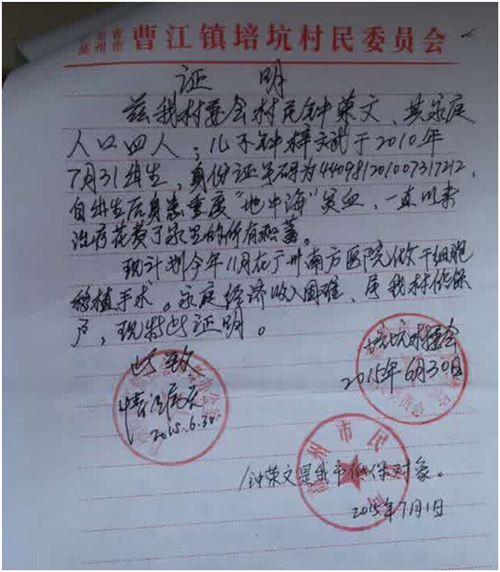 广东省
高州市 曹江镇培坑村民委员会
证明
兹我村委会村民钟荣文、其家庭
人口四人；儿子钟梓斌于2010年
7月31出生，身份证号码为440981201007317212，
自出生后身患重度“地中海”贫血，一直以来
治疗花费了家里的所有积蓄。
现计划今年11月在广州南方医院做干细胞
移植手术。家庭经济收入困难，属我村低保
户，现特此证明。
此致
培坑村委会
2015年6月30日
情况属实
2015.6.30
高州市民
钟荣文是我市低保对象。
2015年7月1日